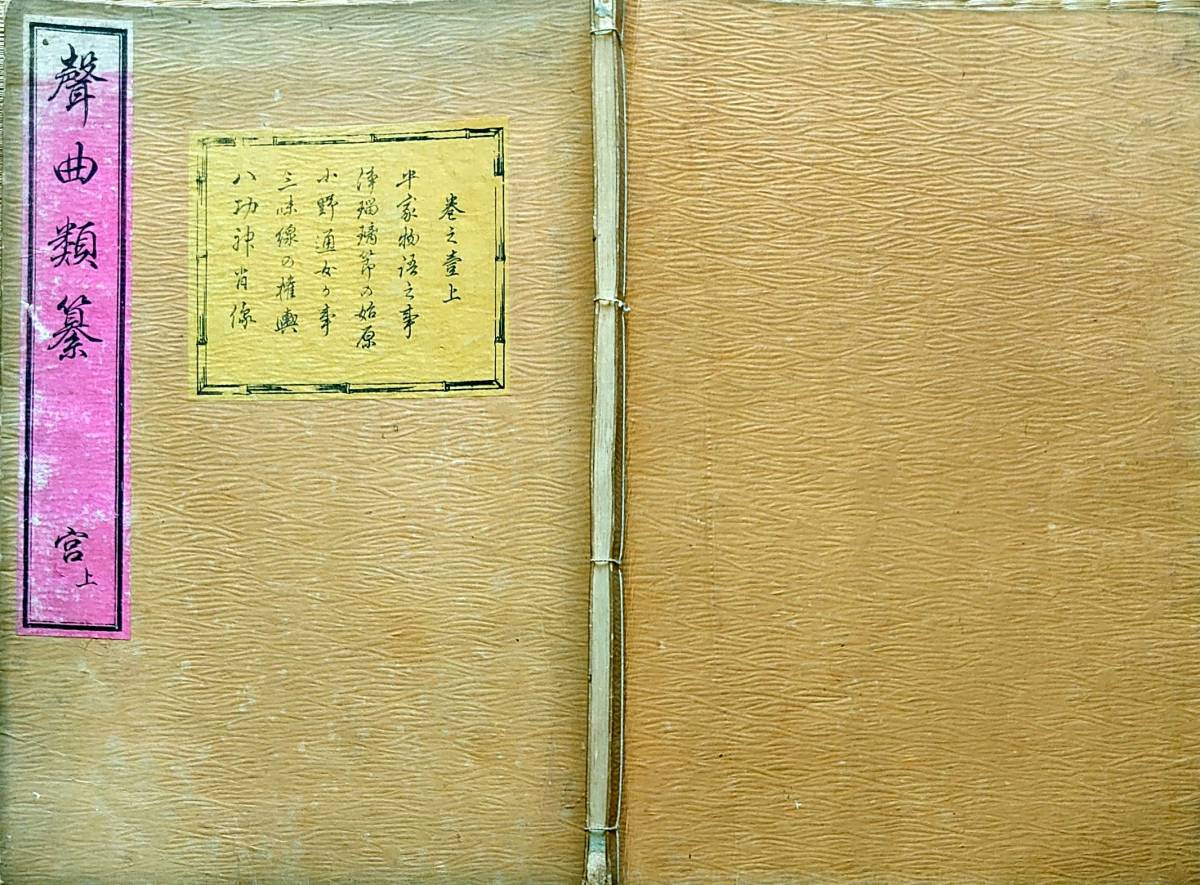 聲曲類纂 宮上
卷之壹上
平家物語之事
浄瑠璃節の始原
小野通女の事
三味線の権輿
八功神肖像